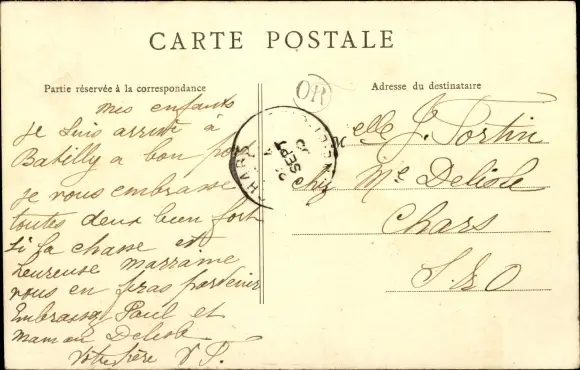 CARTE POSTALE
Partie réservée à la correspondance
Adresse du destinataire
OR
mes enfants
je suis arrivé à
Batilly a bon
je vous embrasse
toutes deux bien fort
si la chasse est
heureuse marraine
vous en
Embrassez Paul et
maman Delisle
Votre père V P.
CHARS
SEPT
Melle J. Fortin
chez Me Delisle
Chars
S. & O